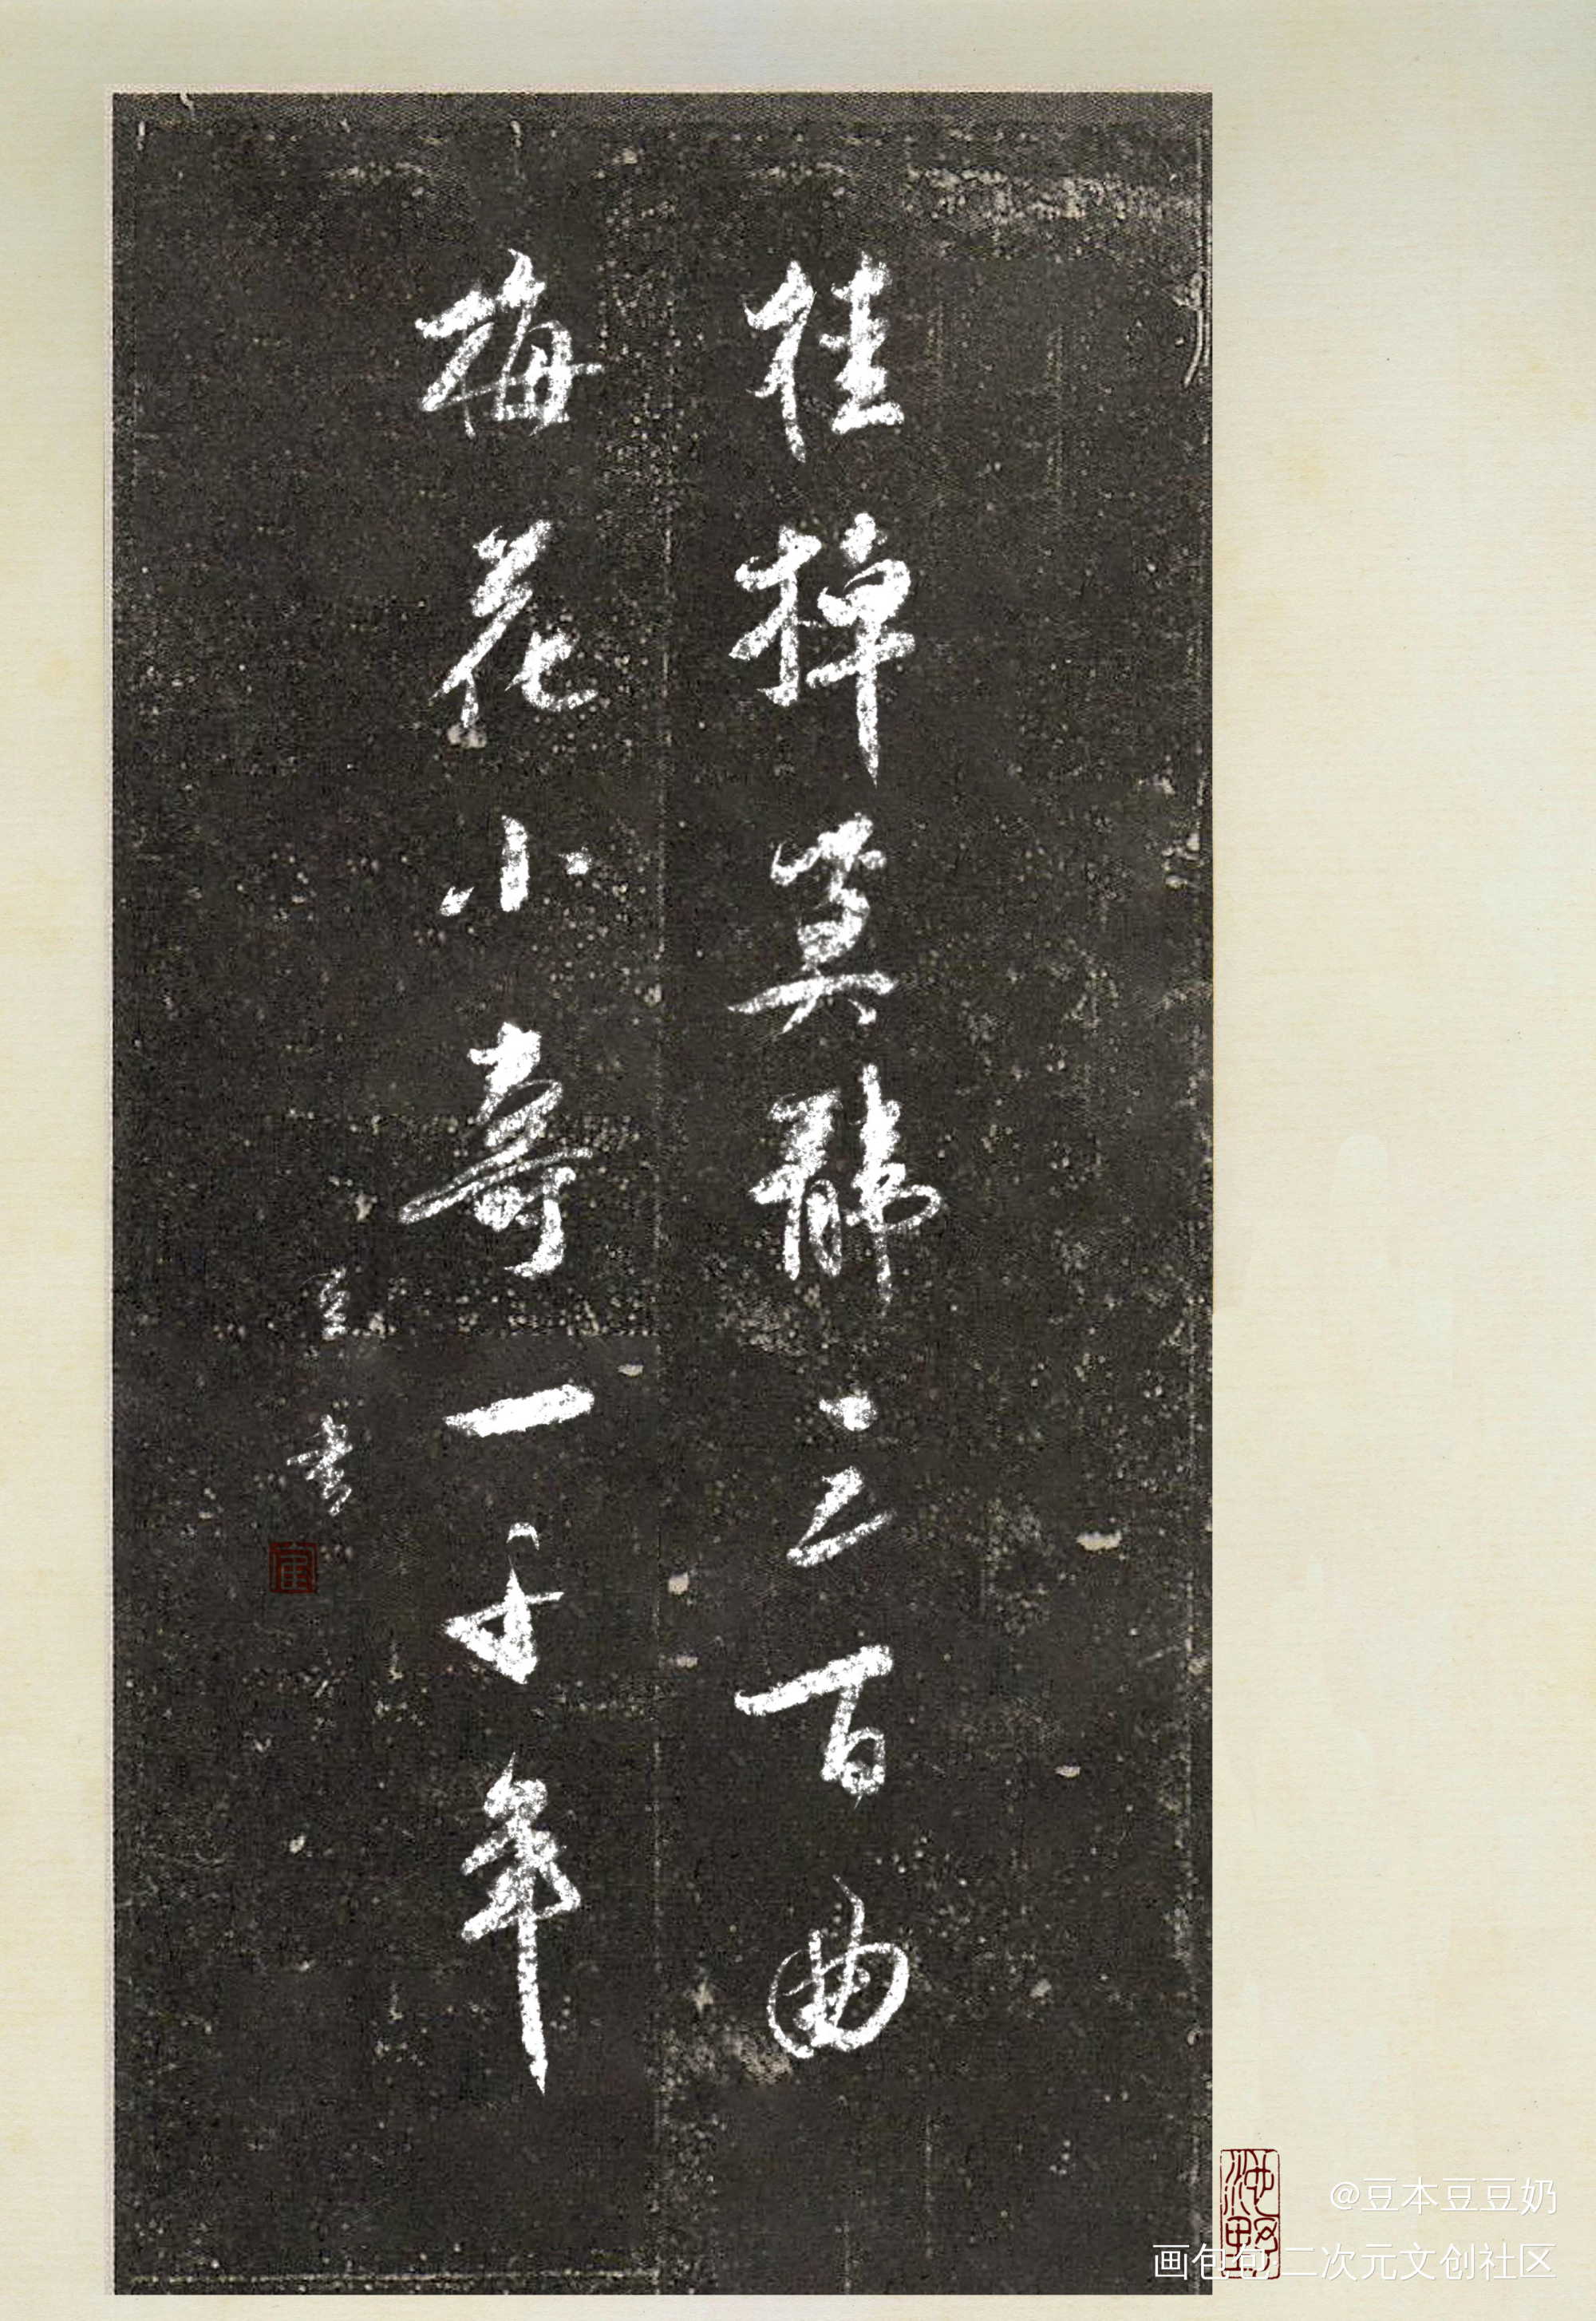 桂棹莫辭三百曲
梅花小壽一千年
豆書
@豆本豆豆奶
画包包二次元文创社区